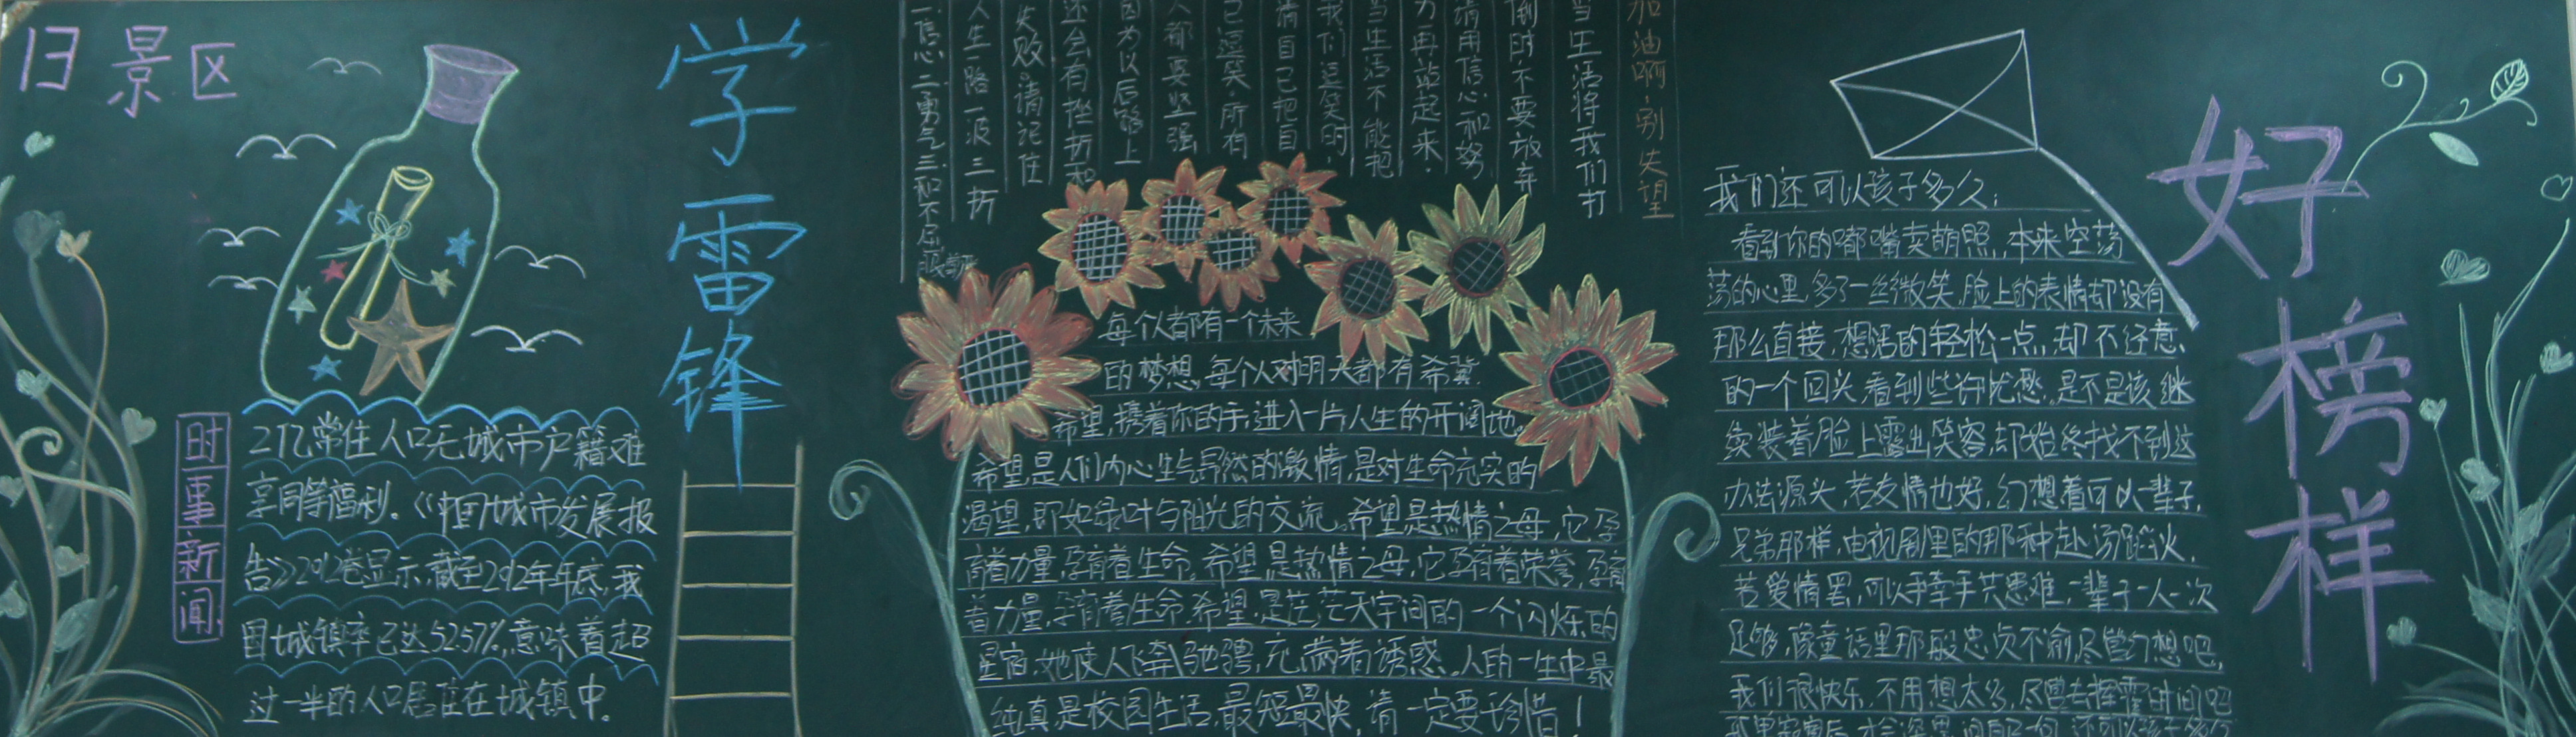 日景区
时事新闻
2亿常住人口无城市户籍难
享同等福利。《中国城市发展报
告》2012卷显示,截至2012年年底,我
国城镇率已达52.57%,意味着超
过一半的人口居住在城镇中。
学雷锋
加油啊,别失望
当生活将我们打
倒时,不要放弃
请用信心和努
力再站起来.
当生活不能把
我们逗笑时,
请自己把自
己逗笑,所有
人都要坚强
因为以后路上
还会有挫折和
失败。请记住
人生一路一波三折
一.信心二.勇气三.和不屈
每个人都有一个未来
的梦想,每个人对明天都有希冀.
希望,携着你的手,进入一片人生的开阔地。
希望是人们内心生与昂然的激情,是对生命充实的
渴望,即如绿叶与阳光的交流。希望是热情之母,它孕
育着力量,孕育着生命。希望是热情之母,它孕育着荣誉,孕育
着力量,孕育着生命.希望,是茫茫天宇间的一个闪烁的
星宿,她使人飞奔驰骋,充满着诱惑.人的一生中最
纯真是校园生活,最短最快,请一定要珍惜!
我们还可以孩子多久;
看到你的嘟嘴卖萌照,本来空荡
荡的心里,多了一丝微笑,脸上的表情却没有
那么直接,想活的轻松一点,却不经意
的一个回头,看到些许忧愁,是不是该继
续装着脸上露出笑容,却始终找不到这
办法源头,若友情也好,幻想着可以一辈子,
兄弟那样,电视剧里的那种赴汤蹈火,
若爱情罢,可以手牵手共患难,一辈子一人一次
足够,像童话里那般忠贞不渝,尽管幻想吧,
我们很快乐,不用想太多,尽管去挥霍时间吧
好榜样